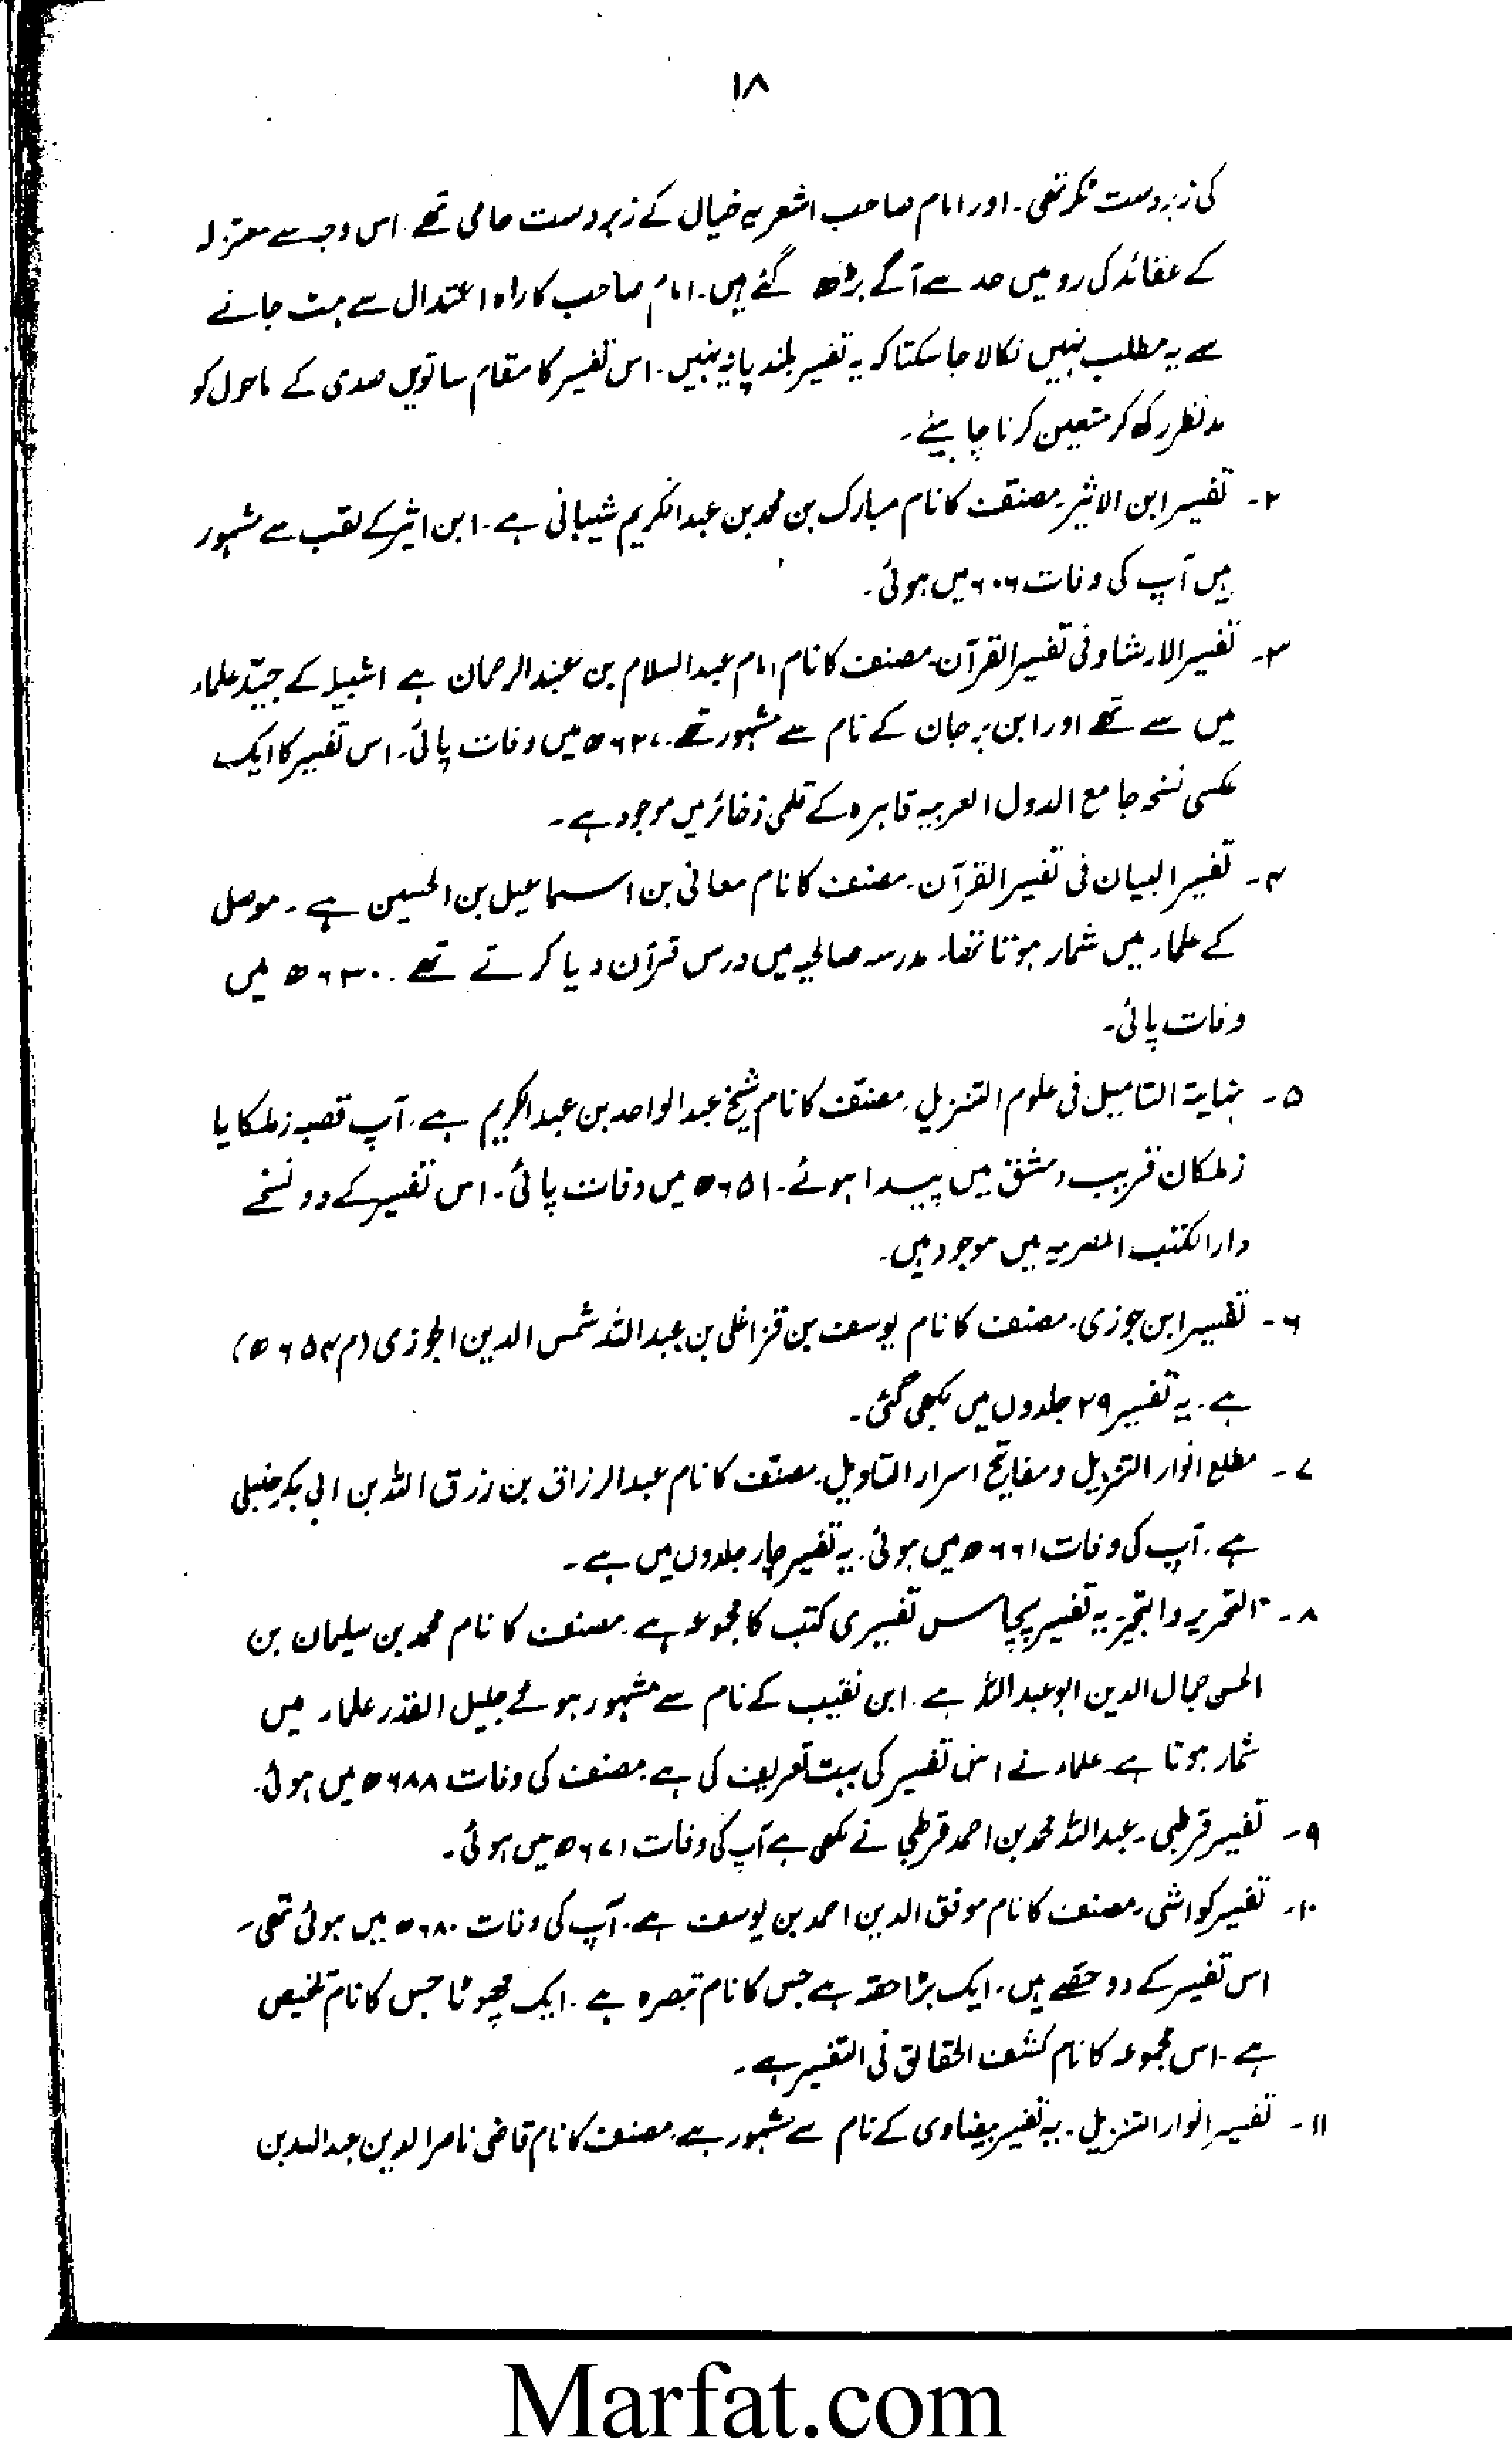 ۱۸
کی زبردست ٹکر تھی۔ اور امام صاحب اشعریہ خیال کے زبردست حامی تھے۔ اس وجہ سے معتزلہ
کے عقائد کی رو میں حد سے آگے بڑھ گئے ہیں۔ امام صاحب کا راہ اعتدال سے ہٹ جانے
سے یہ مطلب نہیں نکالا جا سکتا کہ یہ تفسیر بلند پایہ نہیں۔ اس تفسیر کا مقام ساتویں صدی کے ماحول کو
مدنظر رکھ کر متعین کرنا چاہیئے۔
۲۔ تفسیر ابن الاثیر۔ مصنف کا نام مبارک بن محمد بن عبدالکریم شیبانی ہے۔ ابن اثیر کے لقب سے مشہور
ہیں آپ کی وفات ۶۰۶ میں ہوئی۔
۳۔ تفسیر الارشاد فی تفسیر القرآن۔ مصنف کا نام امام عبدالسلام بن عبدالرحمان ہے اشبیلہ کے جیّد علماء
میں سے تھے اور ابن برجان کے نام سے مشہور تھے۔ ۶۲۷ھ میں وفات پائی۔ اس تفسیر کا ایک
عکسی نسخہ جامع الدول العربیہ قاہرہ کے قلمی ذخائر میں موجود ہے۔
۴۔ تفسیر البیان فی تفسیر القرآن۔ مصنف کا نام معافی بن اسماعیل بن الحسین ہے۔ موصل
کے علماء میں شمار ہوتا تھا۔ مدرسہ صالحیہ میں درس قرآن دیا کرتے تھے۔ ۶۳۰ھ میں
وفات پائی۔
۵۔ نہایۃ التامیل فی علوم التنزیل۔ مصنف کا نام شیخ عبدالواحد بن عبدالکریم ہے۔ آپ قصبہ زملکا یا
زملکان قریب دمشق میں پیدا ہوئے۔ ۶۵۱ھ میں وفات پائی۔ اس تفسیر کے دو نسخے
دارالکتب المصریہ میں موجود ہیں۔
۶۔ تفسیر ابن جوزی۔ مصنف کا نام یوسف بن قزاغلی بن عبداللہ شمس الدین الجوزی (م ۶۵۴ھ)
ہے۔ یہ تفسیر ۲۹ جلدوں میں لکھی گئی۔
۷۔ مطلع انوار التنزیل و مفاتیح اسرار التاویل۔ مصنف کا نام عبدالرزاق بن رزق اللہ بن ابی بکر حنبلی
ہے۔ آپ کی وفات ۶۶۱ھ میں ہوئی۔ یہ تفسیر چار جلدوں میں ہے۔
۸۔ التحریر والتجیز یہ تفسیر پچاس تفسیری کتب کا مجموعہ ہے۔ مصنف کا نام محمد بن سلیمان بن
الحسن جمال الدین ابو عبداللہ ہے۔ ابن نقیب کے نام سے مشہور ہوئے جلیل القدر علماء میں
شمار ہوتا ہے۔ علماء نے اس تفسیر کی بہت تعریف کی ہے۔ مصنف کی وفات ۶۸۸ھ میں ہوئی۔
۹۔ تفسیر قرطبی۔ عبداللہ محمد بن احمد قرطبی نے لکھی ہے آپ کی وفات ۶۷۱ھ میں ہوئی۔
۱۰۔ تفسیر کواشی۔ مصنف کا نام موفق الدین احمد بن یوسف ہے۔ آپ کی وفات ۶۸۰ھ میں ہوئی تھی۔
اس تفسیر کے دو حصّے ہیں۔ ایک بڑا حصّہ ہے جس کا نام تبصرہ ہے۔ ایک چھوٹا جس کا نام تلخیص
ہے۔ اس مجموعہ کا نام کشف الحقائق فی التفسیر ہے۔
۱۱۔ تفسیر انوار التنزیل۔ یہ تفسیر بیضاوی کے نام سے مشہور ہے۔ مصنف کا نام قاضی ناصرالدین عبداللہ بن
Marfat.com